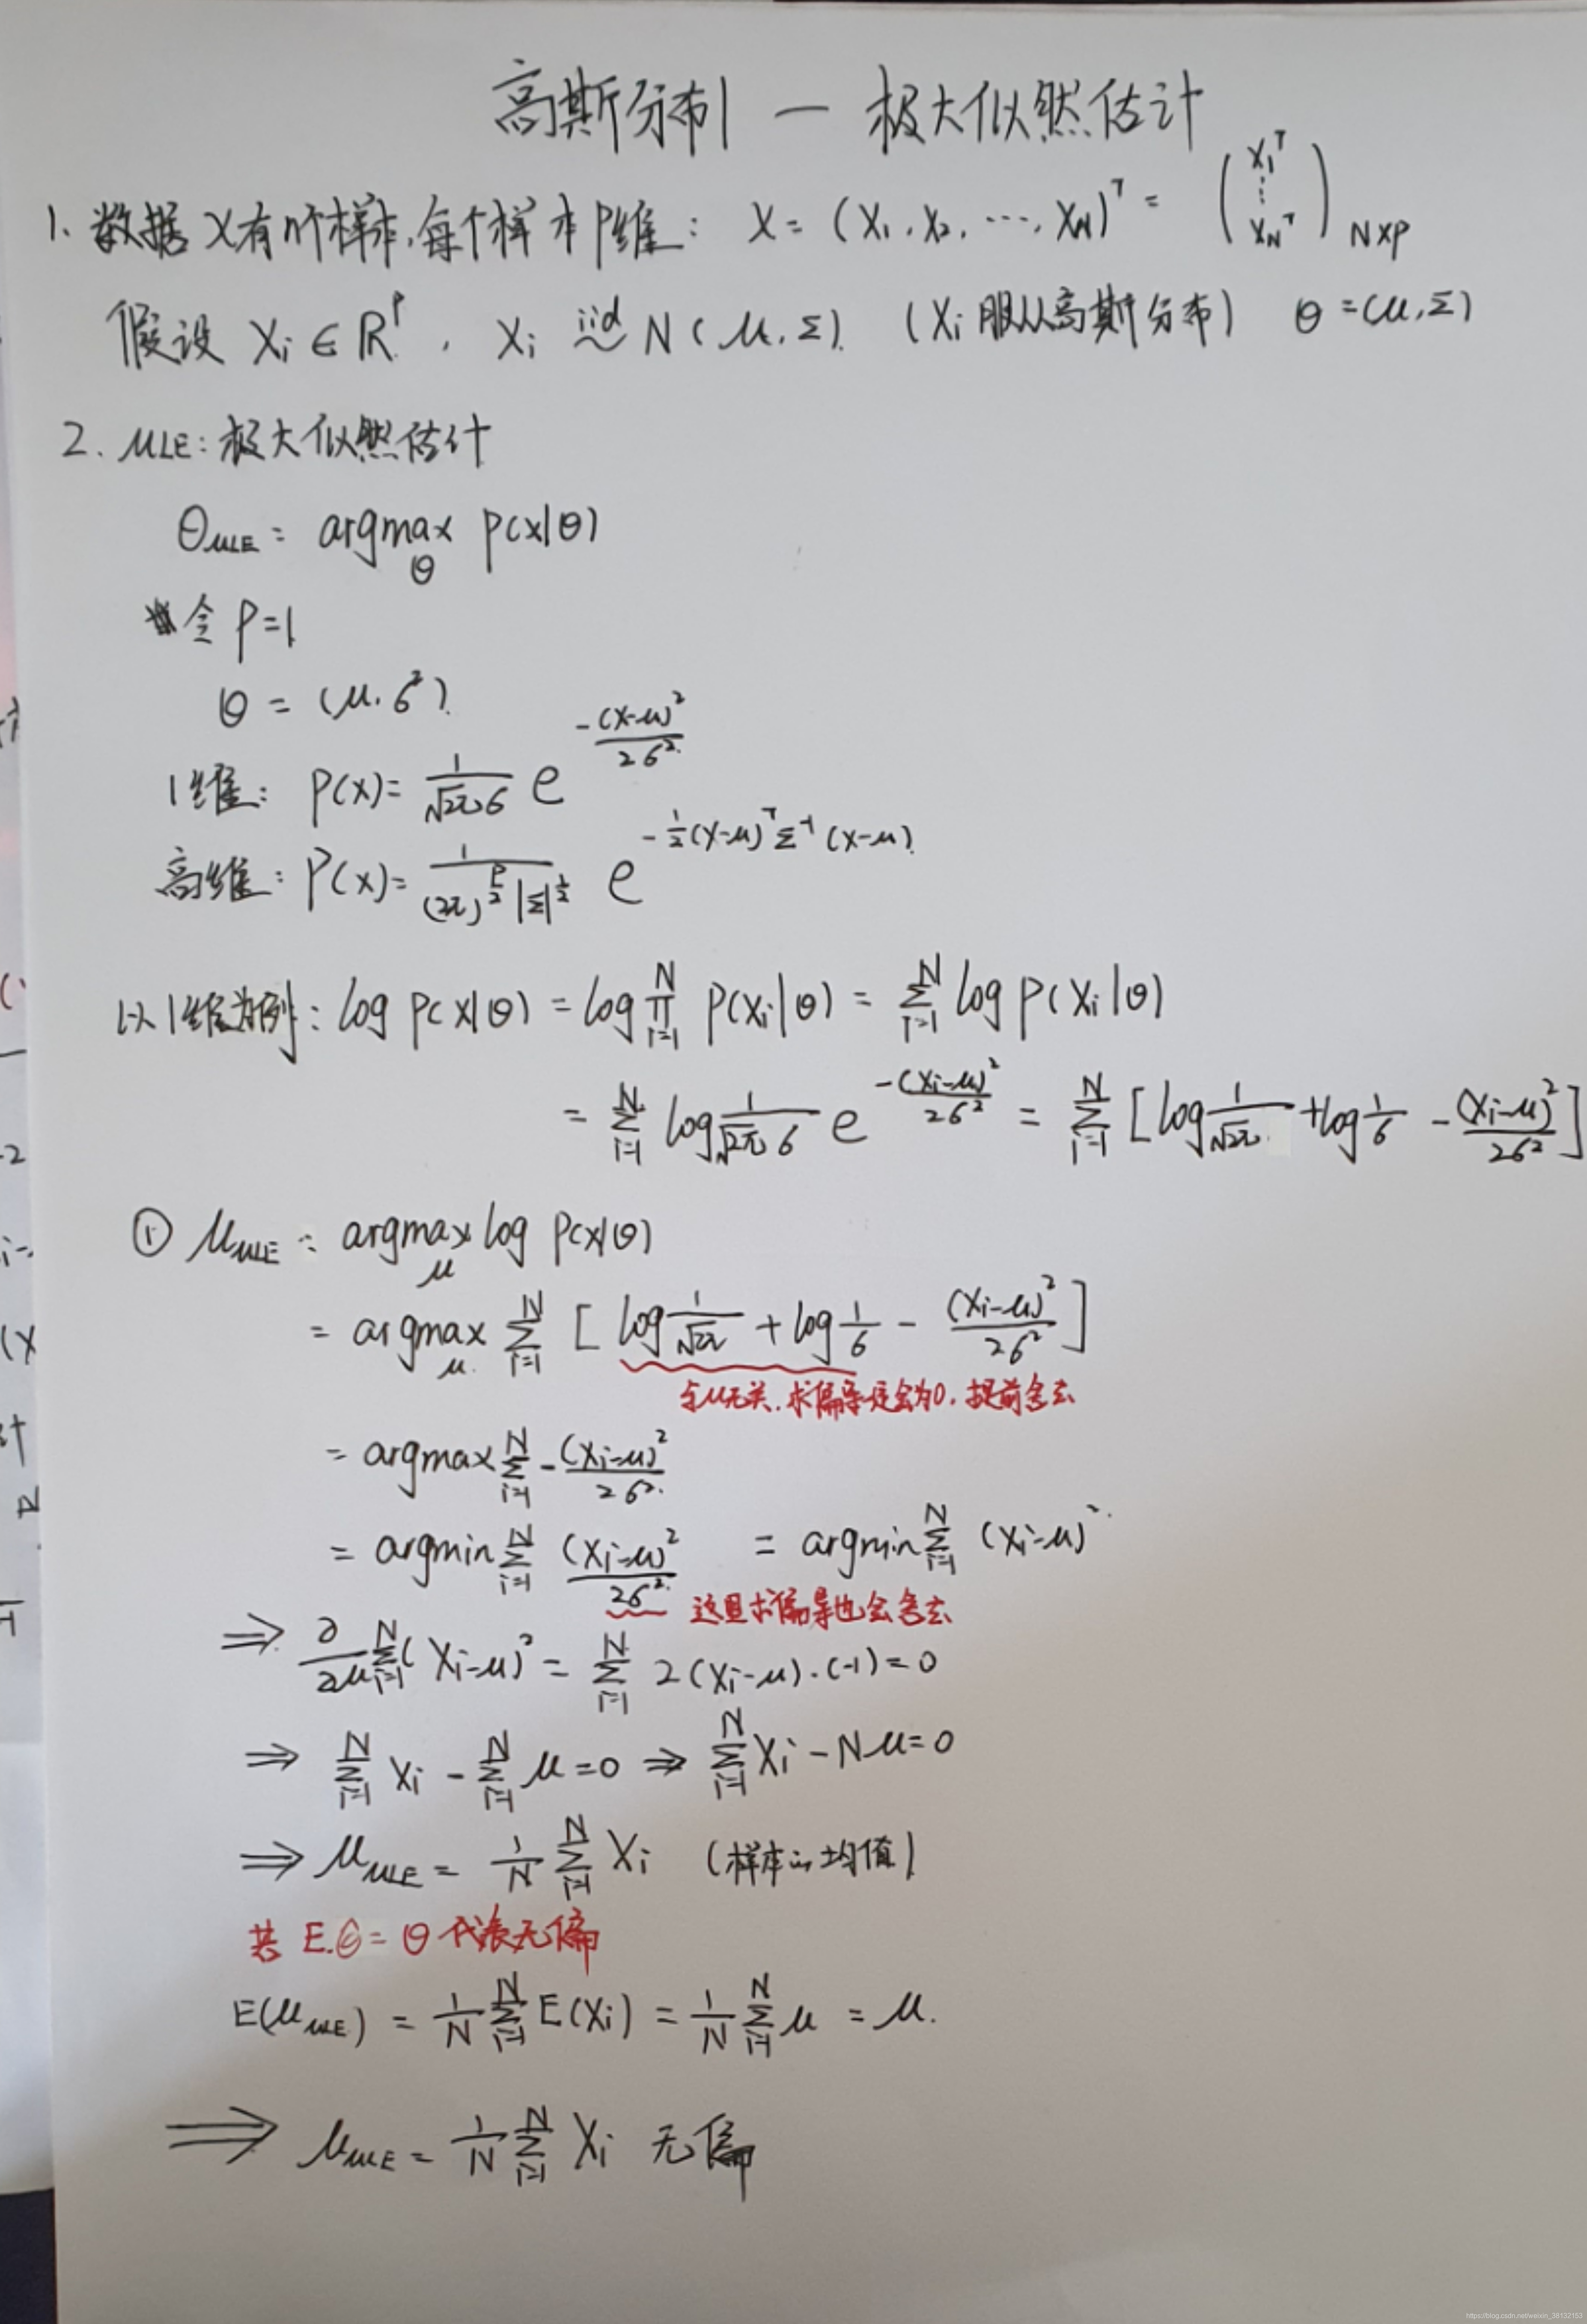 高斯分布1 — 极大似然估计
1. 数据 X 有 n个样本, 每个样本 P维: X = (X₁, X₂, ⋯, X_N)^T = (X₁^T ⋮ X_N^T)_{N×P}
假设 X_i ∈ R^P, X_i iid~ N(μ, Σ). (X_i 服从高斯分布) θ = (μ, Σ)
2. MLE: 极大似然估计
θ_MLE = argmax_θ P(X|θ)
令 P=1
θ = (μ, σ²).
1维: P(X) = 1/(√2π σ) e^{-(X-μ)²/2σ²}
高维: P(X) = 1/((2π)^{P/2} |Σ|^{1/2}) e^{-1/2 (X-μ)^T Σ^{-1} (X-μ)}
以1维为例: log P(X|θ) = log ∏_{i=1}^N P(X_i|θ) = Σ_{i=1}^N log P(X_i|θ)
= Σ_{i=1}^N log 1/(√2π σ) e^{-(X_i-μ)²/2σ²} = Σ_{i=1}^N [log 1/√2π + log 1/σ - (X_i-μ)²/2σ²]
① μ_MLE = argmax_μ log P(X|θ)
= argmax_μ Σ_{i=1}^N [log 1/√2π + log 1/σ - (X_i-μ)²/2σ²]
与μ无关, 求偏导定会为0, 提前舍去
= argmax Σ_{i=1}^N -(X_i-μ)²/2σ²
= argmin Σ_{i=1}^N (X_i-μ)²/2σ² = argmin Σ_{i=1}^N (X_i-μ)²
这里求偏导也会舍去
⇒ ∂/∂μ Σ_{i=1}^N (X_i-μ)² = Σ_{i=1}^N 2(X_i-μ)·(-1) = 0
⇒ Σ_{i=1}^N X_i - Σ_{i=1}^N μ = 0 ⇒ Σ_{i=1}^N X_i - Nμ = 0
⇒ μ_MLE = 1/N Σ_{i=1}^N X_i (样本的均值)
E.θ̂ = θ 代表无偏
E(μ_MLE) = 1/N Σ_{i=1}^N E(X_i) = 1/N Σ_{i=1}^N μ = μ.
⇒ μ_MLE = 1/N Σ_{i=1}^N X_i 无偏
https://blog.csdn.net/weixin_38132153